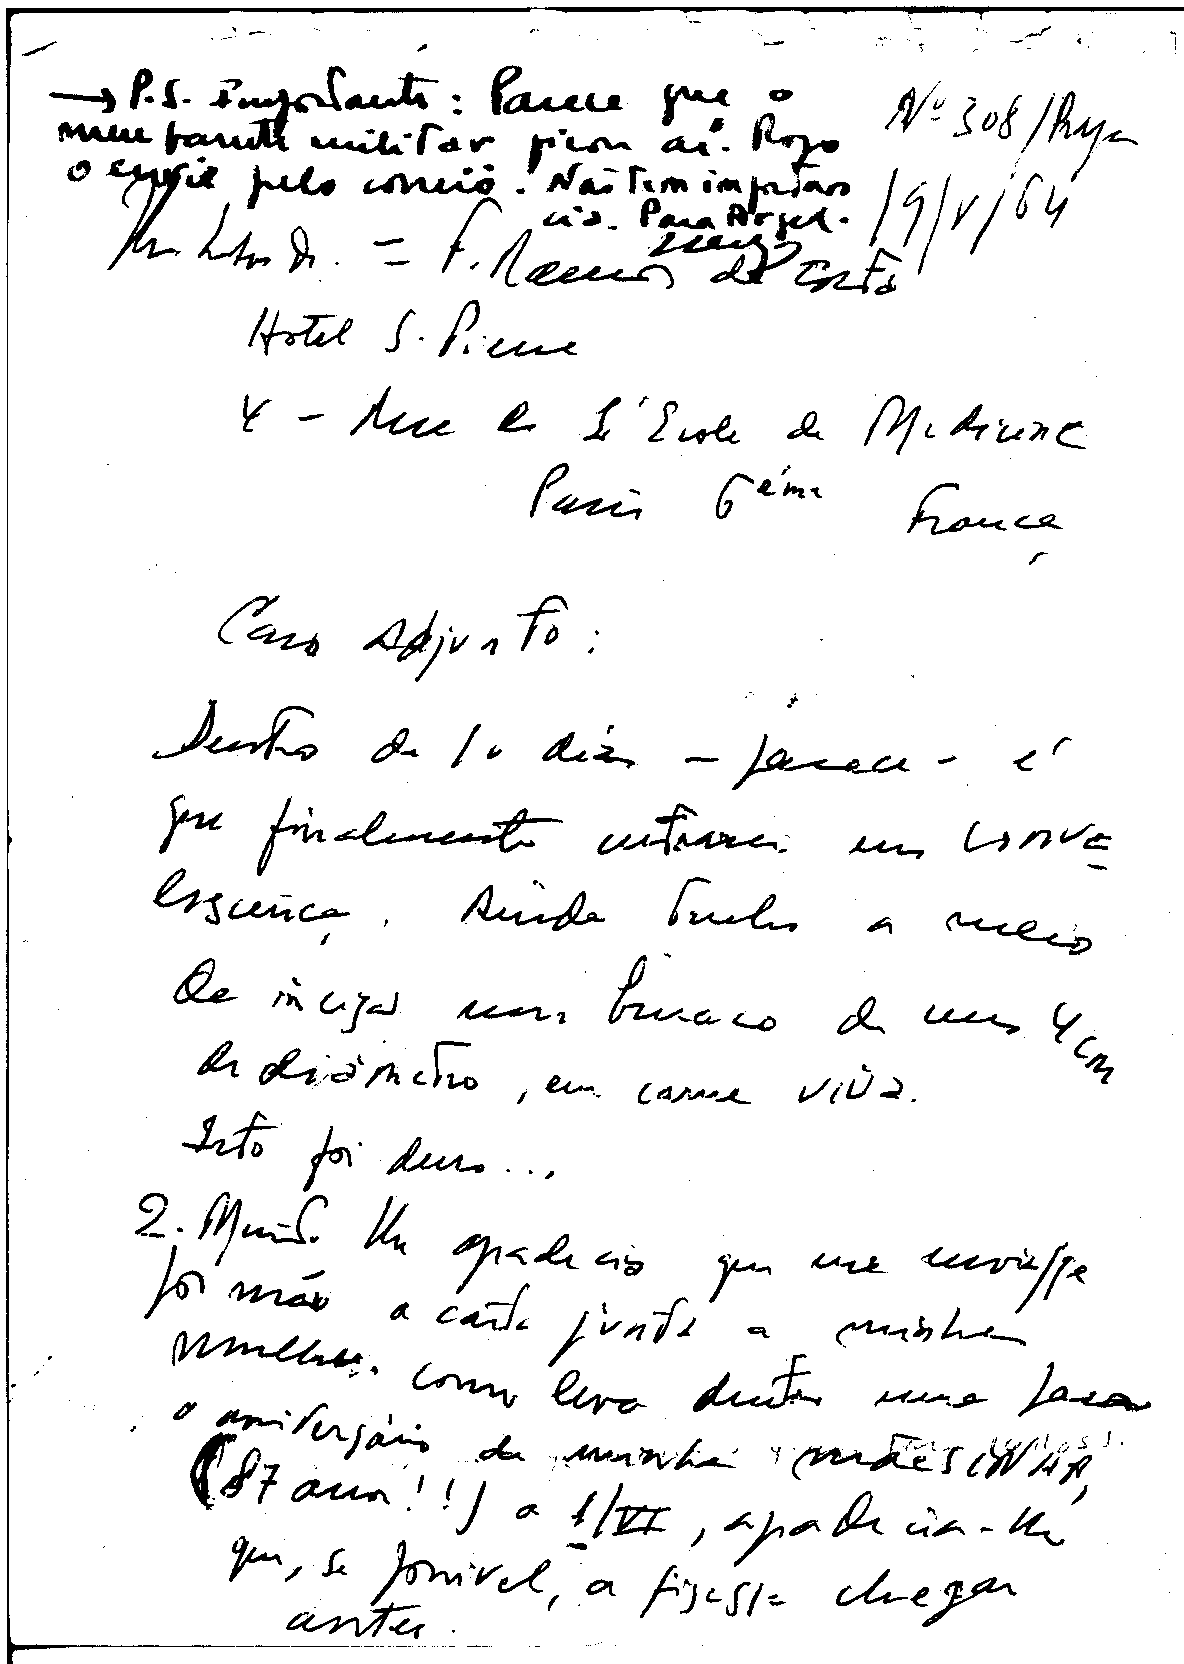 → P.S. Importante: Parece que o
meu parente militar ficou aí. Rogo
o envie pelo correio. Não tem importân
cia. Para Argel.
Nº 308/
19/V/64
= F. Ramos da Costa
Hotel S. Pierre
4 - Rue de L'École de Medicine
Paris 6ème França
Caro Adjunto:
Dentro de 10 dias - parece - é
que finalmente entrarei em conva
lescença. Ainda tenho a meio
da incisão um buraco de uns 4 cm
de diâmetro, em carne viva.
Isto foi duro...
2. Muito lhe agradecia que me enviasse
por mão a carta junta a minha
mulher. Como leva dentro uma para
o aniversário de minha mãesinha,
(87 anos!!) a 1/VI, agradecia-lhe
que, se possível, a fizesse chegar
antes.